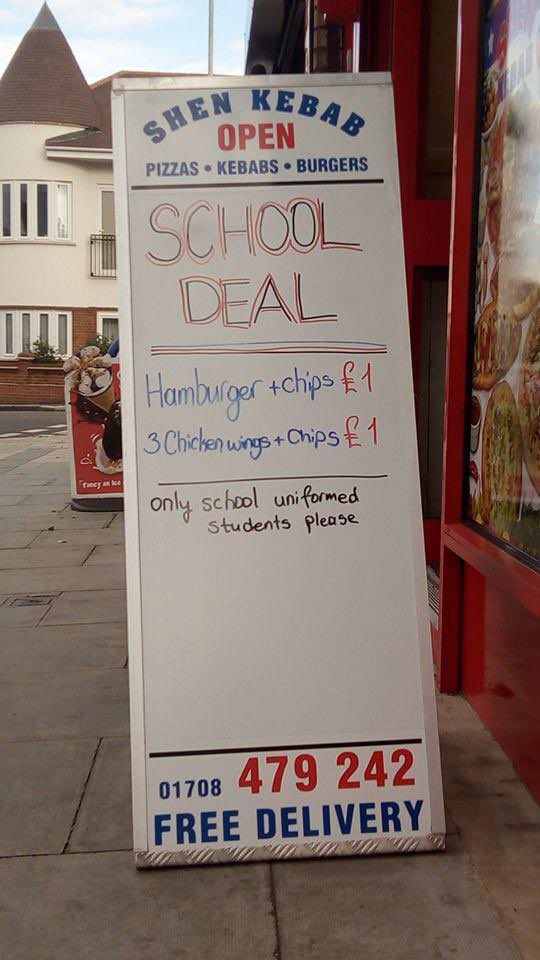 SHEN KEBAB
OPEN
PIZZAS • KEBABS • BURGERS
SCHOOL
DEAL
Hamburger + chips £1
3 Chicken wings + Chips £1
only school uniformed
students please
01708 479 242
FREE DELIVERY
Fancy an Ice